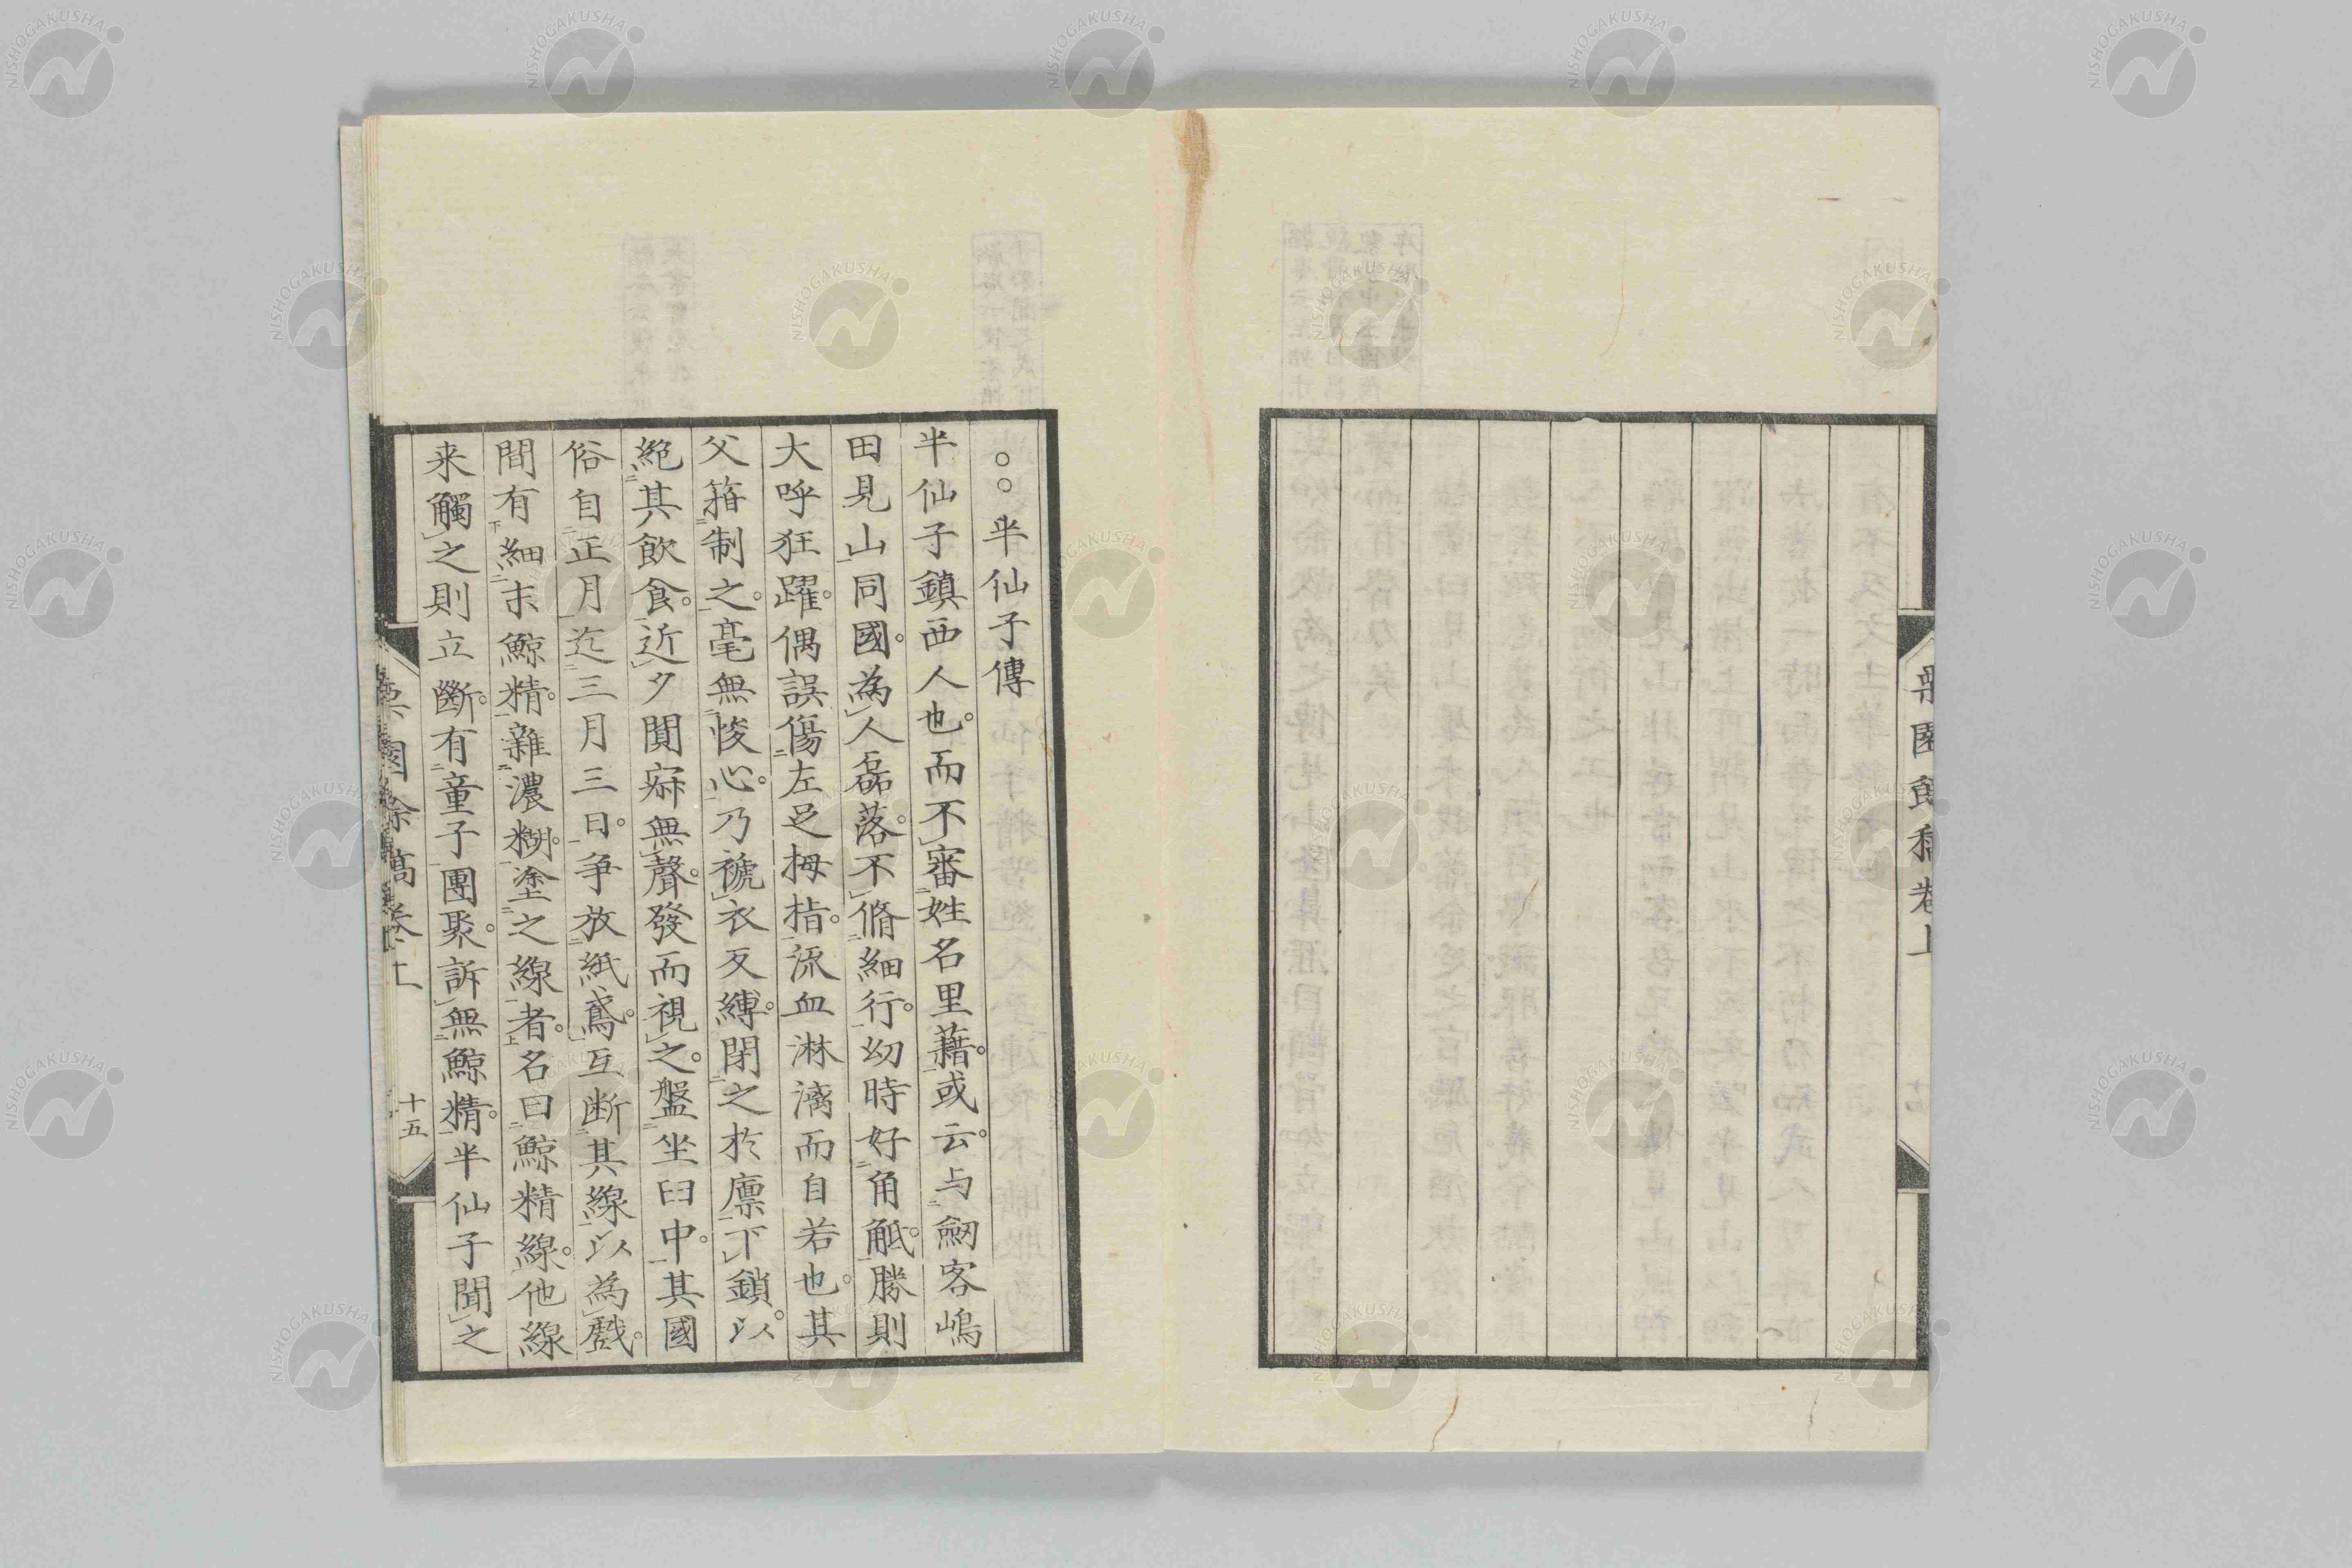 栗園餘稿巻上
○○半仙子傳
半仙子鎮西人也。而不審姓名里藉。或云。与劒客嶋
田見山同國。為人磊落。不脩細行。幼時好角觝。勝則
大呼狂躍。偶誤傷左足拇指。流血淋漓而自若也。其
父箝制之。毫無悛心。乃褫衣反縛。閉之於廪下。鎖以
絶其飲食。近夕闃寂無聲。發而視之。盤坐臼中。其國
俗自正月迄三月三日。争放紙鳶。互断其線以為戲。
間有細末鯨精。雜濃糊。塗之線者。名曰鯨精線。他線
来觸之則立斷。有童子團聚。訴無鯨精。半仙子聞之
栗園餘稿巻上
十五
NISHOGAKUSHA